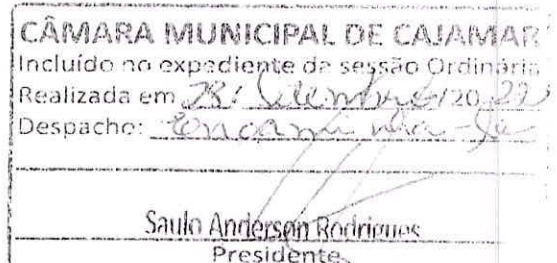 CÂMARA MUNICIPAL DE CAJAMAR
Incluído no expediente da sessão Ordinária
Realizada em 28/ Setembro/20 22
Despacho: Encaminha-se
Saulo Anderson Rodrigues
Presidente